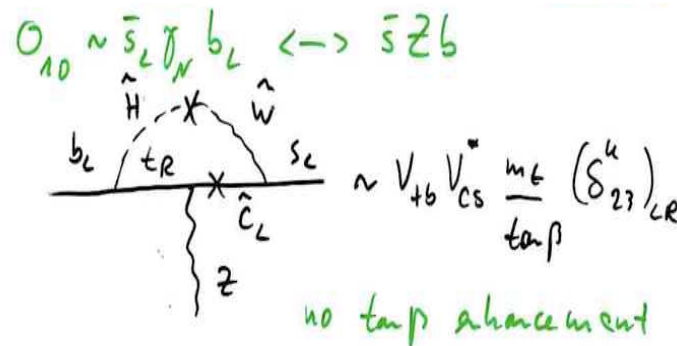 O₁₀ ~ s̄_L γ_μ b_L <-> s̄ Z b
H̃ W̃
b_L t_R s_L ~ V_tb V_cs^* m_t/tanβ (δ^u_23)_LR
c̃_L
Z
no tanβ enhancement